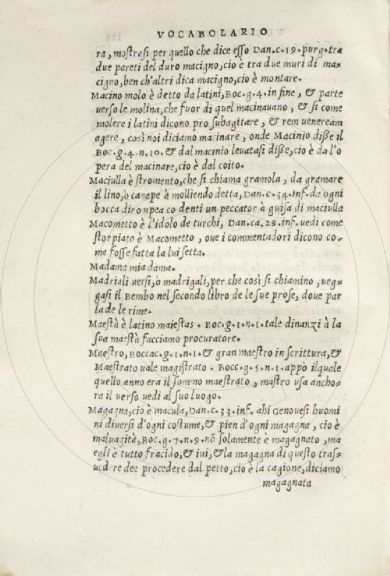 VOCABOLARIO
ra, mostresi per quello che dice esso DAN.c.19.purg.tra
due pareti del duro macigno, cio è tra due muri di ma
cigno, ben ch'altri dica macigno, cio è montare.
Macino molo è detto da latini, BOC.g.4.in fine, & parte
uerso le molina, che fuor di quel macinauano, & si come
molere i latini dicono pro subagitare, & rem ueneream
agere, così noi diciamo macinare, onde Macinio disse il
BOC.g.4.n.10.& dal macinio leuatasi disse, cio è da l'o
pera del macinare, cio è dal coito.
Maciulla è stromento, che si chiama gramola, da gramare
il lino, o canape è molliendo detta, DAN.c.34.inf.da ogni
bocca dirompea co denti un peccator à guisa di maciulla
Macometto è l'idolo de turchi, DAN.ca.28.inf.uedi come
storpiato è Macometto, oue i commentadori dicono co-
me fosse fatta la lui setta.
Madama mia dama.
Madriali uersi, o madrigali, per che così si chiamino, ueg-
gasi il Bembo nel secondo libro de le sue prose, doue par
la de le rime.
Maestà è latino maiestas. BOC.g.1.n.1.tale dinanzi à la
sua maestà facciamo procuratore.
Maestro, BOCCAC.g.1.n.1.& gran maestro in scrittura, &
Maestrato uale magistrato. BOCC.g.5.n.1.appò ilquale
quello anno era il sommo maestrato, mastro usa ancho-
ra il uerso uedi al suo luogo.
Magagna, cio è macula, DAN.c.33.inf.ahi Genouesi huomi
ni diuersi d'ogni costume, & pien d'ogni magagna, cio è
maluagità, BOC.g.7.n.9.nõ solamente è magagnato, ma
egli è tutto fracido, & iui, & la magagna di questo tras-
udere dee procedere dal petto, cio è la cagione, diciamo
magagnata